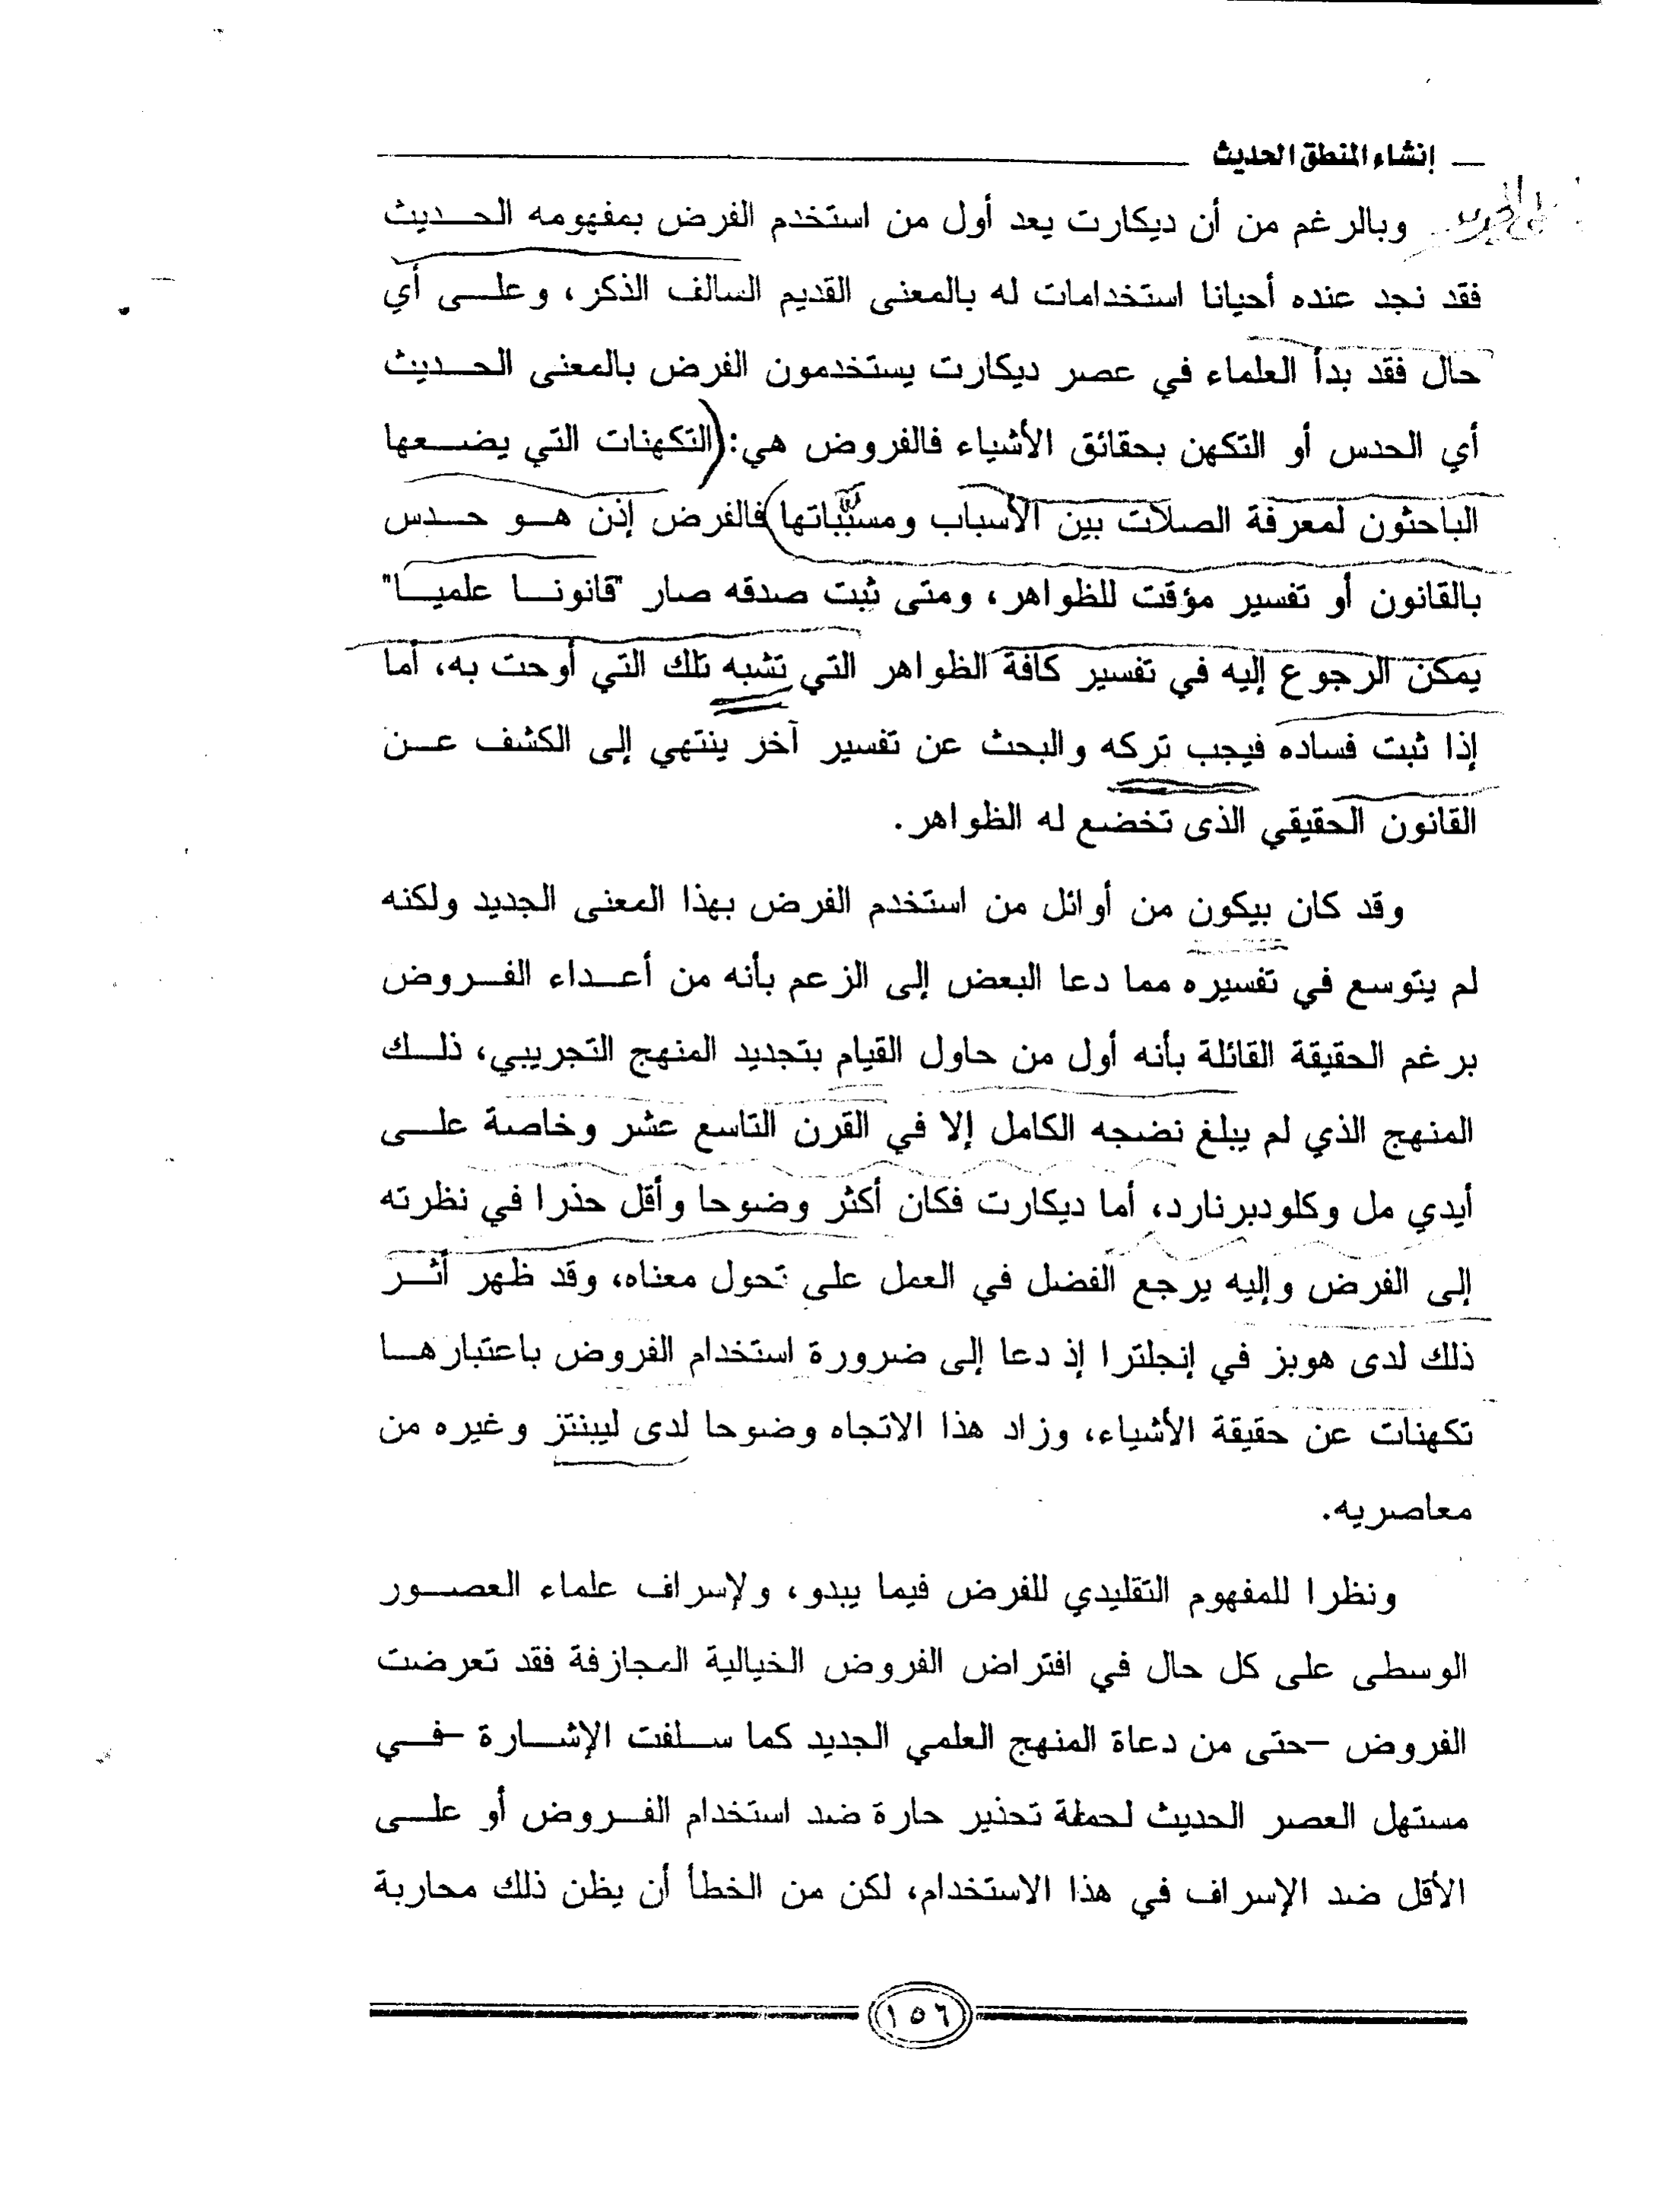 إنشاء المنطق الحديث
وبالرغم من أن ديكارت يعد أول من استخدم الفرض بمفهومه الحديث
فقد نجد عنده أحيانا استخدامات له بالمعنى القديم السالف الذكر، وعلى أي
حال فقد بدأ العلماء في عصر ديكارت يستخدمون الفرض بالمعنى الحديث
أي الحدس أو التكهن بحقائق الأشياء فالفروض هي: (التكهنات التي يضعها
الباحثون لمعرفة الصلات بين الأسباب ومسبباتها) فالفرض إذن هو حدس
بالقانون أو تفسير مؤقت للظواهر، ومتى ثبت صدقه صار "قانونا علميا"
يمكن الرجوع إليه في تفسير كافة الظواهر التي تشبه تلك التي أوحت به، أما
إذا ثبت فساده فيجب تركه والبحث عن تفسير آخر ينتهي إلى الكشف عن
القانون الحقيقي الذى تخضع له الظواهر.
وقد كان بيكون من أوائل من استخدم الفرض بهذا المعنى الجديد ولكنه
لم يتوسع في تفسيره مما دعا البعض إلى الزعم بأنه من أعداء الفروض
برغم الحقيقة القائلة بأنه أول من حاول القيام بتجديد المنهج التجريبي، ذلك
المنهج الذي لم يبلغ نضجه الكامل إلا في القرن التاسع عشر وخاصة على
أيدي مل وكلودبرنارد، أما ديكارت فكان أكثر وضوحا وأقل حذرا في نظرته
إلى الفرض وإليه يرجع الفضل في العمل على تحول معناه، وقد ظهر أثر
ذلك لدى هوبز في إنجلترا إذ دعا إلى ضرورة استخدام الفروض باعتبارها
تكهنات عن حقيقة الأشياء، وزاد هذا الاتجاه وضوحا لدى ليبنتز وغيره من
معاصريه.
ونظرا للمفهوم التقليدي للفرض فيما يبدو، ولإسراف علماء العصور
الوسطى على كل حال في افتراض الفروض الخيالية المجازفة فقد تعرضت
الفروض -حتى من دعاة المنهج العلمي الجديد كما سلفت الإشارة -في
مستهل العصر الحديث لحملة تحذير حارة ضد استخدام الفروض أو على
الأقل ضد الإسراف في هذا الاستخدام، لكن من الخطأ أن يظن ذلك محاربة
١٥٦